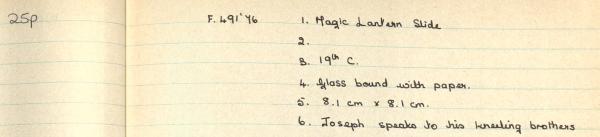 25p
F. 491'76
1. Magic Lantern Slide
2.
3. 19th C.
4. Glass bound with paper.
5. 8.1 cm x 8.1 cm.
6. Joseph speaks to his kneeling brothers